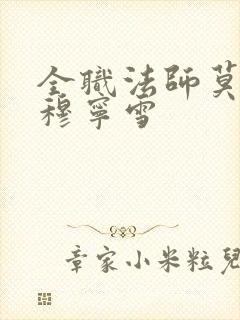 全職法師莫
穆寧雪
章家小米粒兒